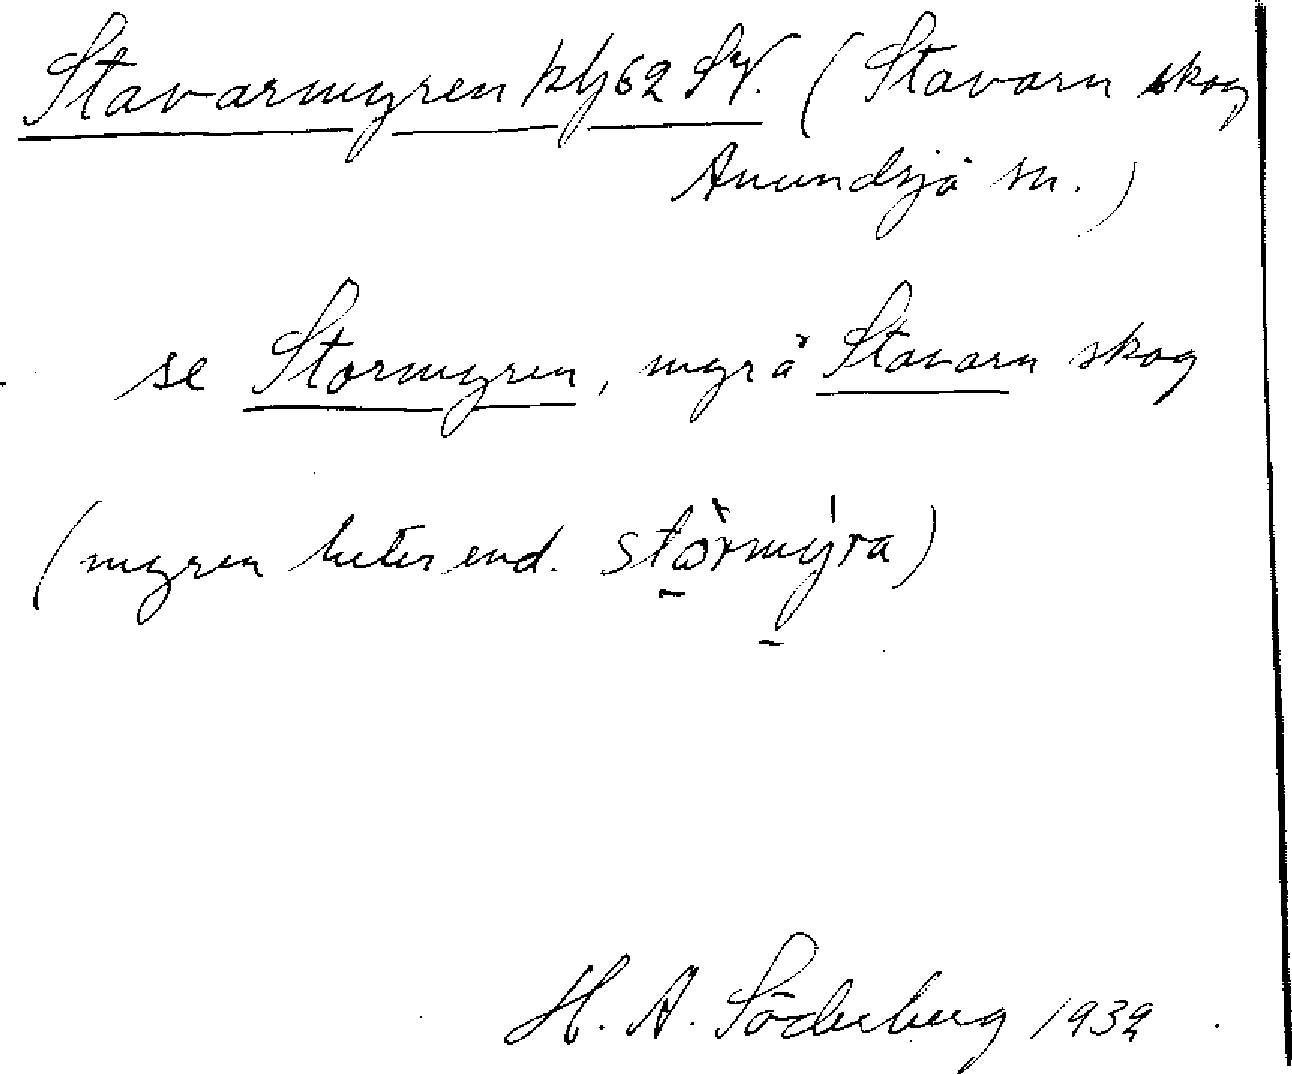 Stavarmyren kbl 62 SV. (Stavarn skog
Anundsjö sn.)
se Stormyren, myr å Stavarn skog
(myren heter end. stòrmýra)
H. A. Söderberg 1932